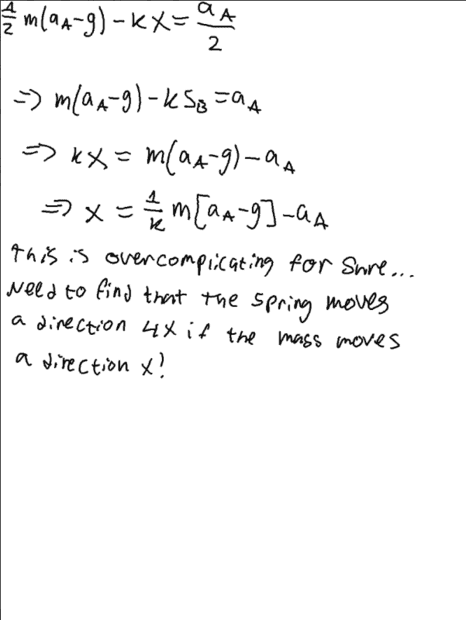 1/2 m(a_A-g) - kx = a_A/2
=> m(a_A-g) - kS_B = a_A
=> kx = m(a_A-g) - a_A
=> x = 1/k m[a_A-g] - a_A
This is overcomplicating for sure...
Need to find that the spring moves
a direction 4x if the mass moves
a direction x!